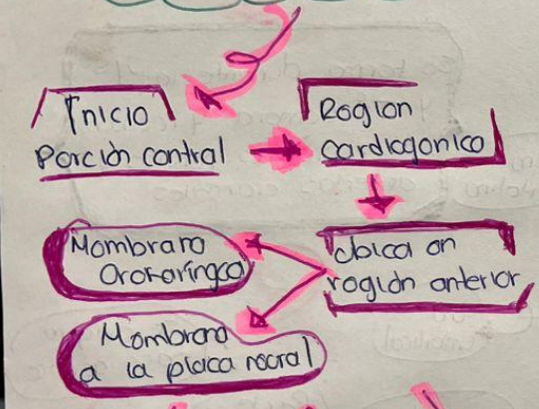 Inicio
Porción central
Region
cardiogonico
Ubica en
región anterior
Membrana
Orofaríngea
Membrana
a la placa neural